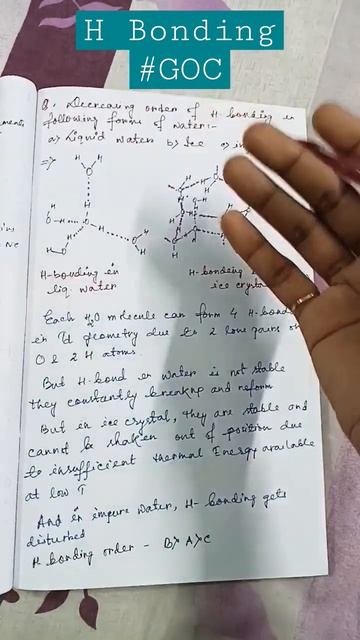 H Bonding
#GOC
Q: Decreasing order of H-bonding in
following forms of water:-
a) Liquid water b) Ice c)
=>
H-bonding in
liq. water
H-bonding
ice cryst
Each H2O molecule can form 4 H-bond
in Td geometry due to 2 lone pairs on
O & 2 H atoms.
But H-bond in water is not stable
they constantly breakup and reform
But in ice crystal, they are stable and
cannot be shaken out of position due
to insufficient thermal Energy available
at low T
And in impure water, H-bonding gets
disturbed
H bonding order - B>A>C